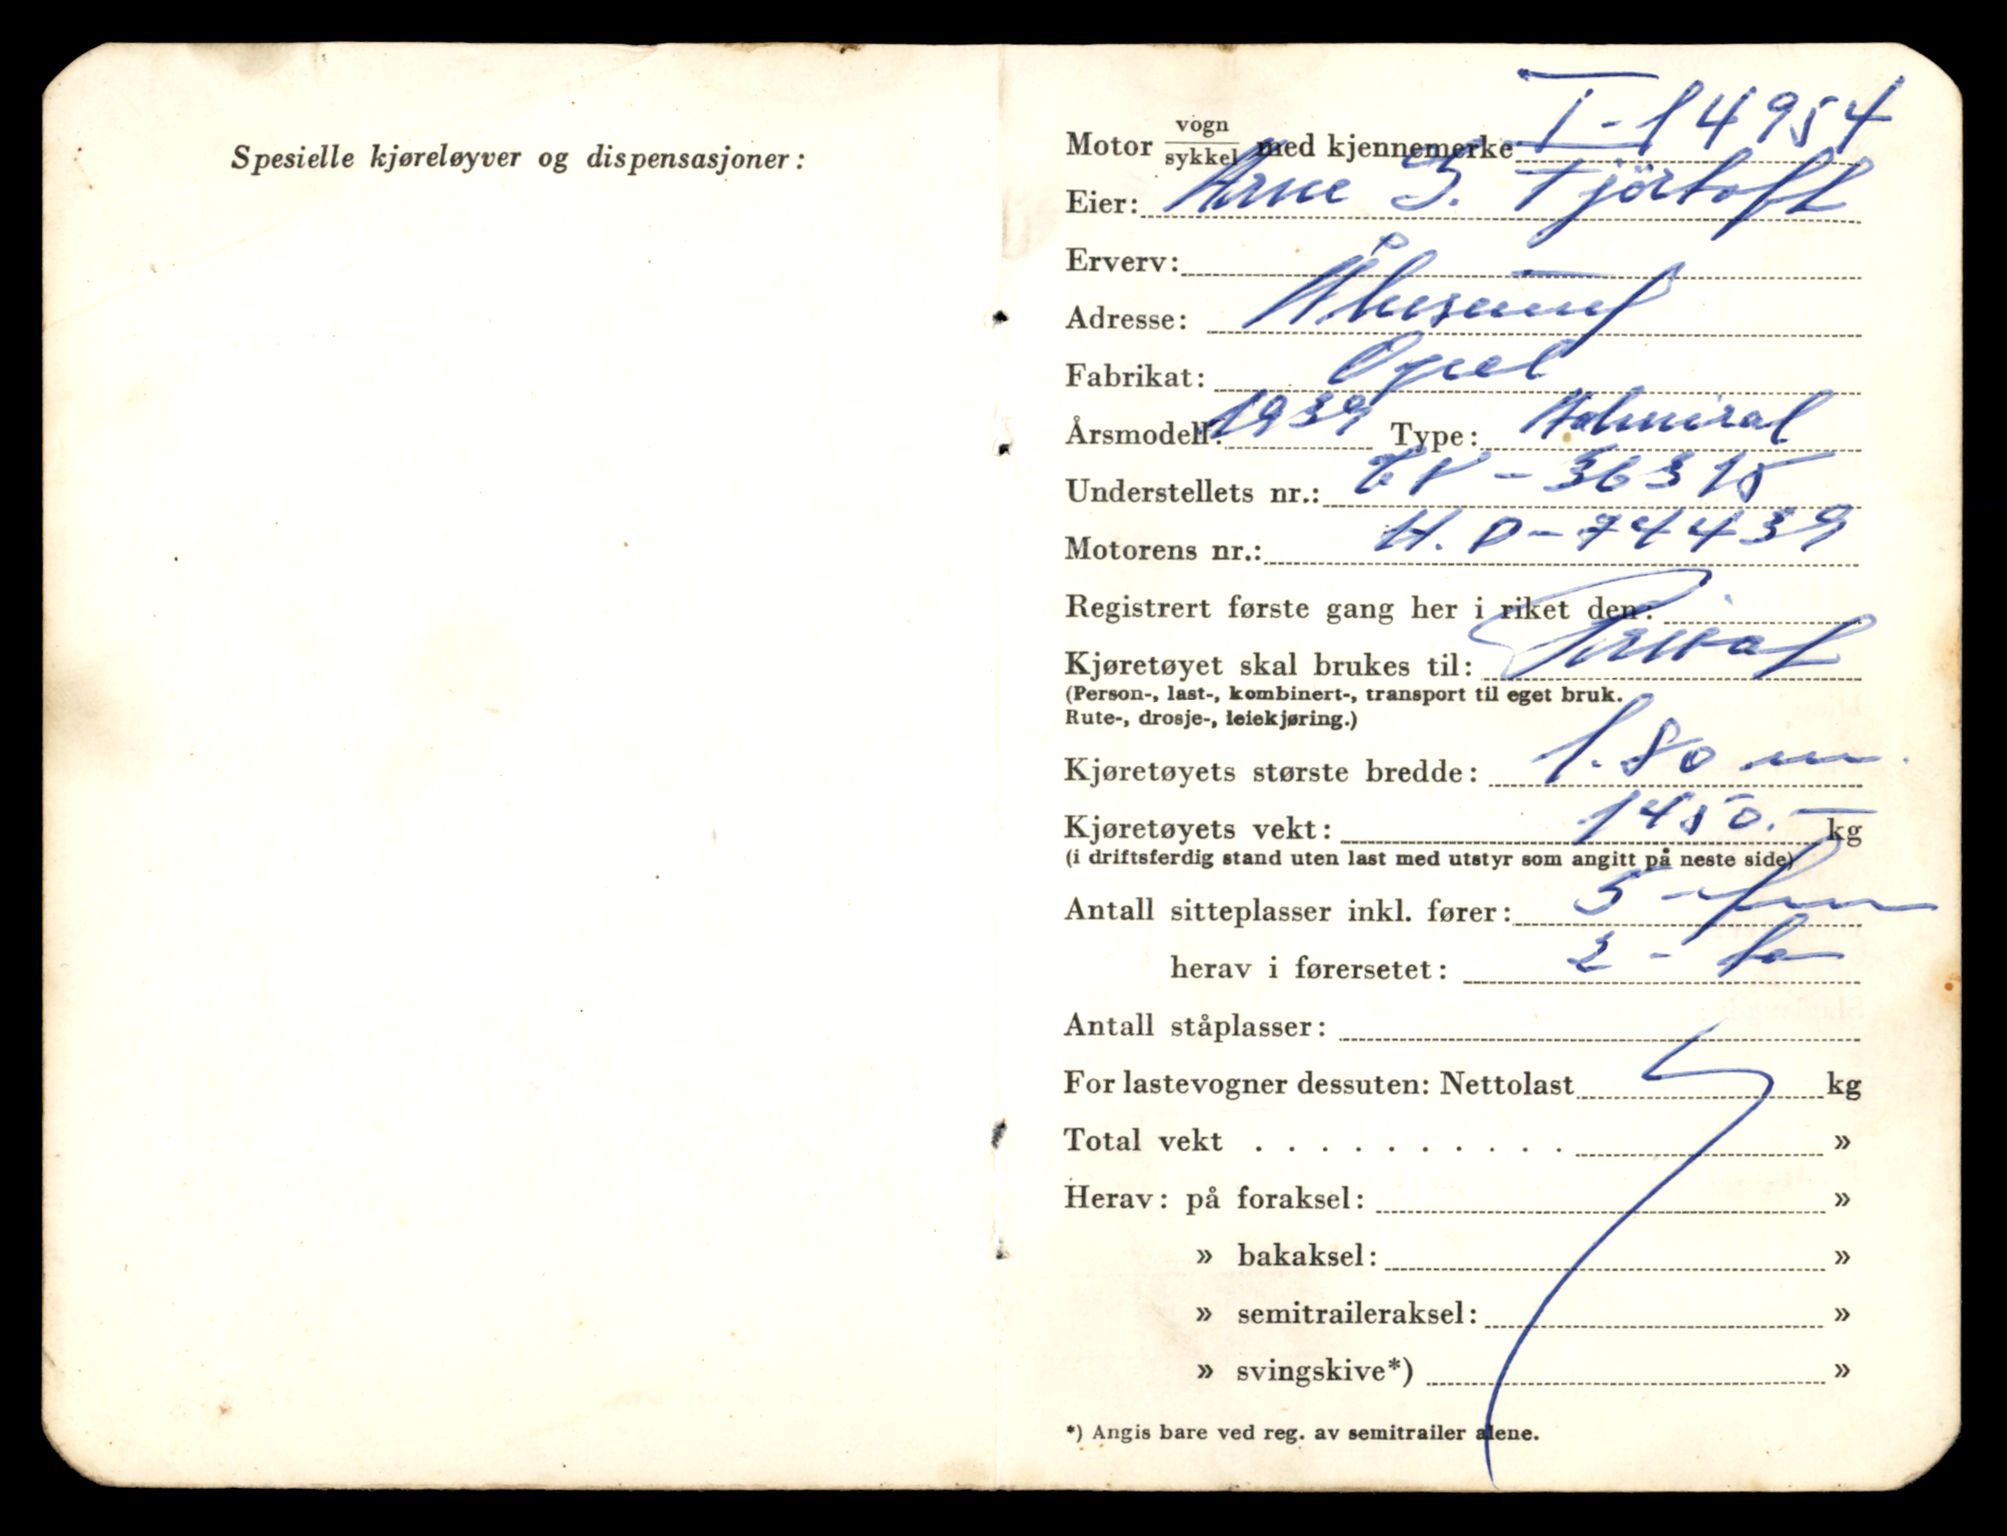 Spesielle kjøreløyver og dispensasjoner:
Motor vogn/sykkel med kjennemerke T-14954
Eier: Arne I. Fjörtoft
Erverv: —
Adresse: Ålesund
Fabrikat: Opel
Årsmodell: 1939 Type: Admiral
Understellets nr.: -36315
Motorens nr.: H.D-74439
Registrert første gang her i riket den:
Kjøretøyet skal brukes til: Privat
(Person-, last-, kombinert-, transport til eget bruk.
Rute-, drosje-, leiekjøring.)
Kjøretøyets største bredde: 1.80 m.
Kjøretøyets vekt: 1450.— kg
(i driftsferdig stand uten last med utstyr som angitt på neste side)
Antall sitteplasser inkl. fører: 5 - fem
herav i førersetet: 2 - to
Antall ståplasser:
For lastevogner dessuten: Nettolast kg
Total vekt . . . . . . . . . . »
Herav: på foraksel: »
» bakaksel: »
» semitraileraksel: »
» svingskive*) »
*) Angis bare ved reg. av semitrailer alene.